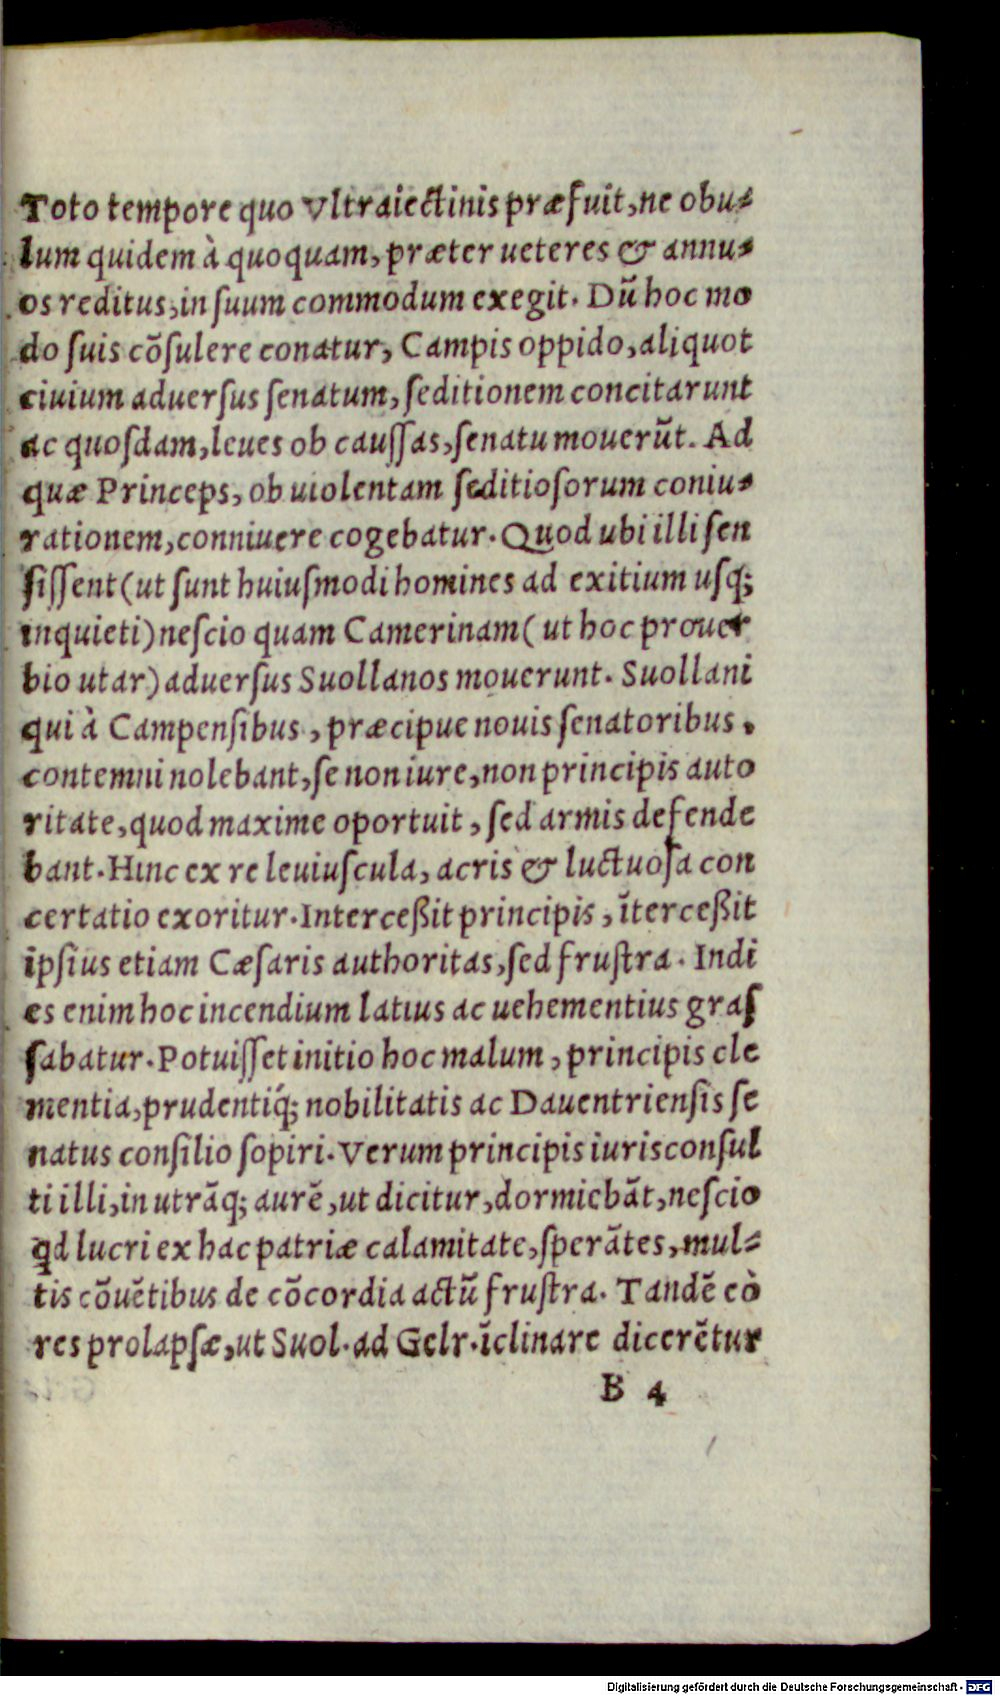 Toto tempore quo Vltraiectinis præfuit, ne obu-
lum quidem à quoquam, præter ueteres & annu-
os reditus, in suum commodum exegit. Dũ hoc mo
do suis cõsulere conatur, Campis oppido, aliquot
ciuium aduersus senatum, seditionem concitarunt
ac quosdam, leues ob caussas, senatu mouerũt. Ad
quæ Princeps, ob uiolentam seditiosorum coniu-
rationem, conniuere cogebatur. Quod ubi illi sen
sissent (ut sunt huiusmodi homines ad exitium usq;
inquieti) nescio quam Camerinam (ut hoc prouer
bio utar) aduersus Suollanos mouerunt. Suollani
qui à Campensibus, præcipue nouis senatoribus.
contemni nolebant, se non iure, non principis auto
ritate, quod maxime oportuit, sed armis defende
bant. Hinc ex re leuiuscula, acris & luctuosa con
certatio exoritur. Interceßit principis, ĩterceßit
ipsius etiam Cæsaris authoritas, sed frustra. Indi
es enim hoc incendium latius ac uehementius gras
sabatur. Potuisset initio hoc malum, principis cle
mentia, prudentiq́; nobilitatis ac Dauentriensis se
natus consilio sopiri. Verum principis iurisconsul
ti illi, in utrãq; aurẽ, ut dicitur, dormiebãt, nescio
qd lucri ex hac patriæ calamitate, sperãtes, mul-
tis cõuẽtibus de cõcordia actũ frustra. Tandẽ eò
res prolapsæ, ut Suol. ad Gelr. ĩclinare dicerẽtur
B 4
Digitalisierung gefördert durch die Deutsche Forschungsgemeinschaft - DFG